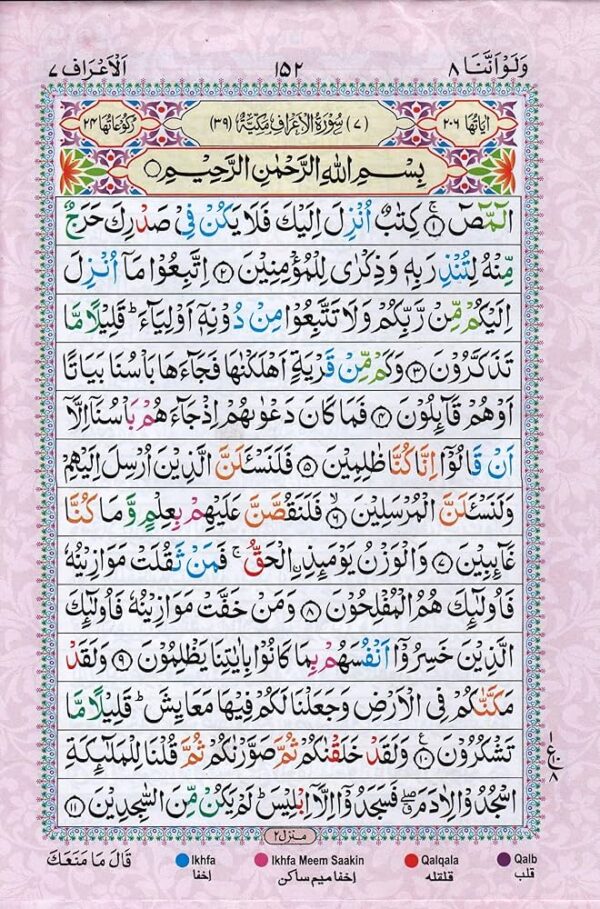 وَلَوْ اَنَّنَا ٨
١٥٢
اَلْاَعْرَاف ٧
اٰيَاتُهَا ٢٠٦
(٧) سُوْرَةُ الْاَعْرَافِ مَكِّيَّةٌ (٣٩)
رُكُوْعَاتُهَا ٢٤
بِسْمِ اللّٰهِ الرَّحْمٰنِ الرَّحِيْمِ ○
الٓمّٓصٓ ۚ ۝١ كِتٰبٌ اُنْزِلَ اِلَيْكَ فَلَا يَكُنْ فِيْ صَدْرِكَ حَرَجٌ
مِّنْهُ لِتُنْذِرَ بِهٖ وَذِكْرٰى لِلْمُؤْمِنِيْنَ ۝٢ اِتَّبِعُوْا مَآ اُنْزِلَ
اِلَيْكُمْ مِّنْ رَّبِّكُمْ وَلَا تَتَّبِعُوْا مِنْ دُوْنِهٖٓ اَوْلِيَآءَ ؕ قَلِيْلًا مَّا
تَذَكَّرُوْنَ ۝٣ وَكَمْ مِّنْ قَرْيَةٍ اَهْلَكْنٰهَا فَجَآءَهَا بَاْسُنَا بَيَاتًا
اَوْ هُمْ قَآئِلُوْنَ ۝٤ فَمَا كَانَ دَعْوٰىهُمْ اِذْ جَآءَهُمْ بَاْسُنَآ اِلَّآ
اَنْ قَالُوْٓا اِنَّا كُنَّا ظٰلِمِيْنَ ۝٥ فَلَنَسْـَٔلَنَّ الَّذِيْنَ اُرْسِلَ اِلَيْهِمْ
وَلَنَسْـَٔلَنَّ الْمُرْسَلِيْنَ ۝٦ فَلَنَقُصَّنَّ عَلَيْهِمْ بِعِلْمٍ وَّمَا كُنَّا
غَآئِبِيْنَ ۝٧ وَالْوَزْنُ يَوْمَئِذِ ِۨالْحَقُّ ۚ فَمَنْ ثَقُلَتْ مَوَازِيْنُهٗ
فَاُولٰٓئِكَ هُمُ الْمُفْلِحُوْنَ ۝٨ وَمَنْ خَفَّتْ مَوَازِيْنُهٗ فَاُولٰٓئِكَ
الَّذِيْنَ خَسِرُوْٓا اَنْفُسَهُمْ بِمَا كَانُوْا بِاٰيٰتِنَا يَظْلِمُوْنَ ۝٩ وَلَقَدْ
مَكَّنّٰكُمْ فِي الْاَرْضِ وَجَعَلْنَا لَكُمْ فِيْهَا مَعَايِشَ ؕ قَلِيْلًا مَّا
تَشْكُرُوْنَ ۝١٠ وَلَقَدْ خَلَقْنٰكُمْ ثُمَّ صَوَّرْنٰكُمْ ثُمَّ قُلْنَا لِلْمَلٰٓئِكَةِ
اسْجُدُوْا لِاٰدَمَ ۖ فَسَجَدُوْٓا اِلَّآ اِبْلِيْسَ ؕ لَمْ يَكُنْ مِّنَ السّٰجِدِيْنَ ۝١١
منزل ٢
قَالَ مَا مَنَعَكَ
Ikhfa Ikhfa Meem Saakin Qalqala Qalb
اخفا اخفا میم ساکن قلقلہ قلب